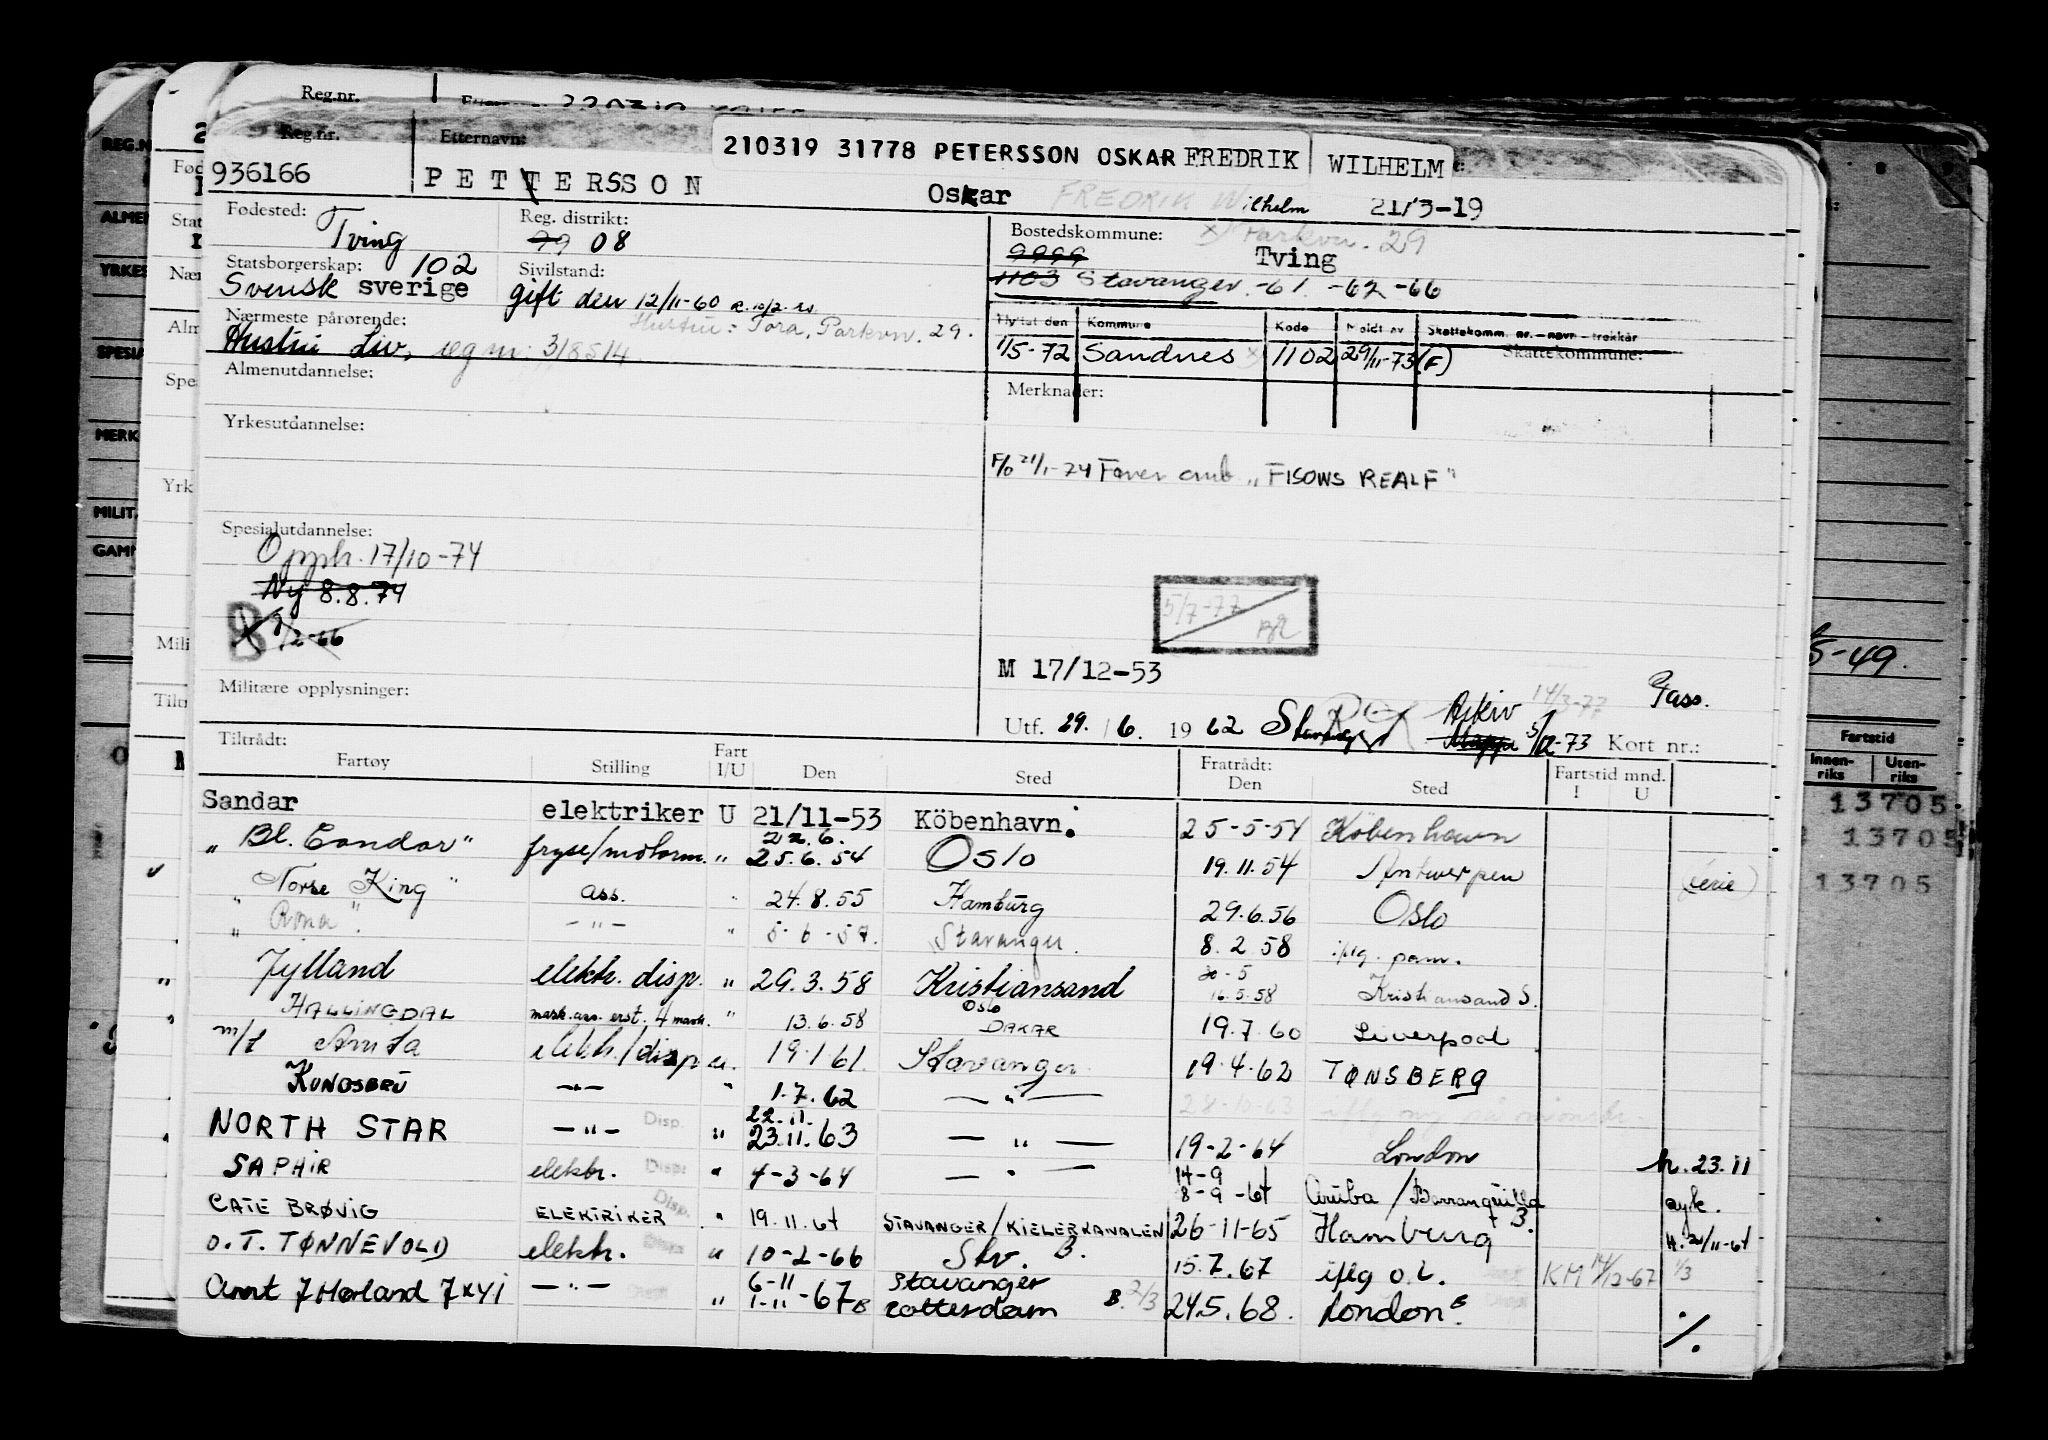 Reg.nr.
REG.N
Reg.nr. Etternavn: 210319 31778 PETERSSON OSKAR FREDRIK WILHELM
936166 PETTERSSON Oskar FREDRIK Wilhelm 21/3-19
Fødested: Tving Reg. distrikt: 99 08 Bostedskommune: x) Parkvn. 29
9999 Tving
Statsborgerskap: 102 Sivilstand: 1103 Stavanger -61 -62 -66
Svensk sverige gift den 12/11-60
Nærmeste pårørende: Hustru: Tora, Parkvn. 29.
Hustru Liv, reg nr: 318514
Flyttet den Kommune Kode Meldt av Skattekomm. nr. – navn – trekkår
1/5-72 Sandnes x) 1102 29/11-73 (F) Skattekommune:
Almenutdannelse: Merknader:
Yrkesutdannelse:
F/o 21/1-74 Farer omb „FISOWS REALF"
Spesialutdannelse:
Opph. 17/10-74
Ny 8.8.74
5/7-77
9/2-66
M 17/12-53
Militære opplysninger:
Arkiv 14/3-77 Pass.
Utf. 29. / 6. 1962 Mappe 5/12-73 Kort nr.:
Tiltrådt: Fratrådt: Fartstid mnd.
Fartøy Stilling Fart I/U Den Sted Den Sted I U
Sandar elektriker U 21/11-53 Köbenhavn. 25-5-54 Köbenhavn
„ Bl. Condor" fryse/motorm. „ 22.6. 25.6.54 Oslo 19.11.54 Antwerpen
„ Norse King " ass. 24.8.55 Hamburg 29.6.56 Oslo
„ Rona " – " – " 5-6-57. Stavanger. 8.2 58 iflg. pam.
Jylland elektr. disp. " 29.3.58 Kristiansand 16.5.58 Kristiansand S.
HALLINGDAL " 13.6.58 Oslo DAKAR 19.7.60 Liverpool
m/t Anita elektr./disp u. 19.1.61. Stavanger 19.4.62 TØNSBERG
KUNGSBRU – " – " 1.7.62 – " – 28-10-63
NORTH STAR – " – Disp. " 22.11. 23.11.63 – " – 19-2-64 London
SAPHIR elektr. Disp. " 4-3-64 – " – 14-9 8-9-64 Aruba / Barranquilla
h. 23.11
CATE BRØVIG ELEKTRIKER Disp. " 19.11.64 STAVANGER/KIELERKANALEN 26-11-65 Hamburg B.
O.T. TØNNEVOLD elektr. " 10-2-66 Stv. B. 15.7.67 iflg o.l. KM 14/12-67 1/3
Arnt J Mørland 7x41 – " – " 6-11 1-11-67 B Stavanger rotterdam B. 2/3 24.5.68. London B.
5-49.
Fartstid
Innenriks Utenriks
13705
13705
13705
ALMEN
YRKES
SPESIA
MERK
MILIT
GAMM